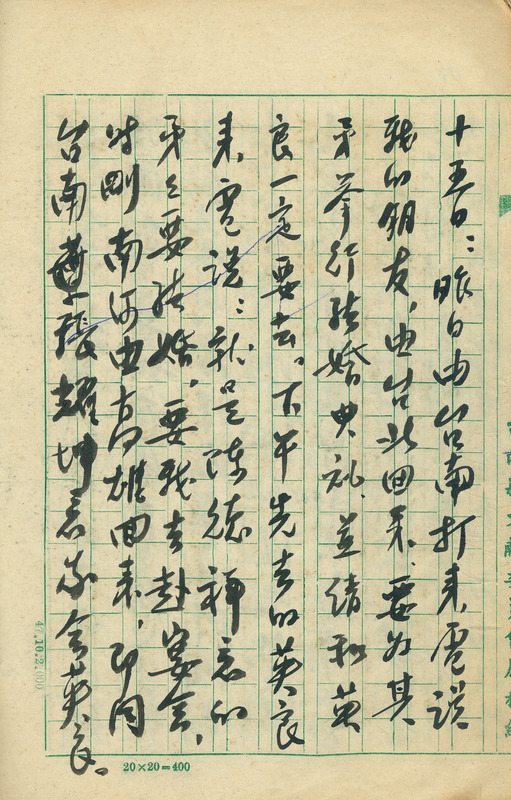 十五日：昨日由台南打来電話
我的朋友，由台北回来，要为其
弟举行结婚典礼，並请和英
良一定要去。下午先去的英良
来電说：就是陈德禅君的
弟弟要结婚，要我去赴宴会，
时刚南河由高雄回来，即同
台南張耀坤君家会英良。
20×20=400
10.2.000